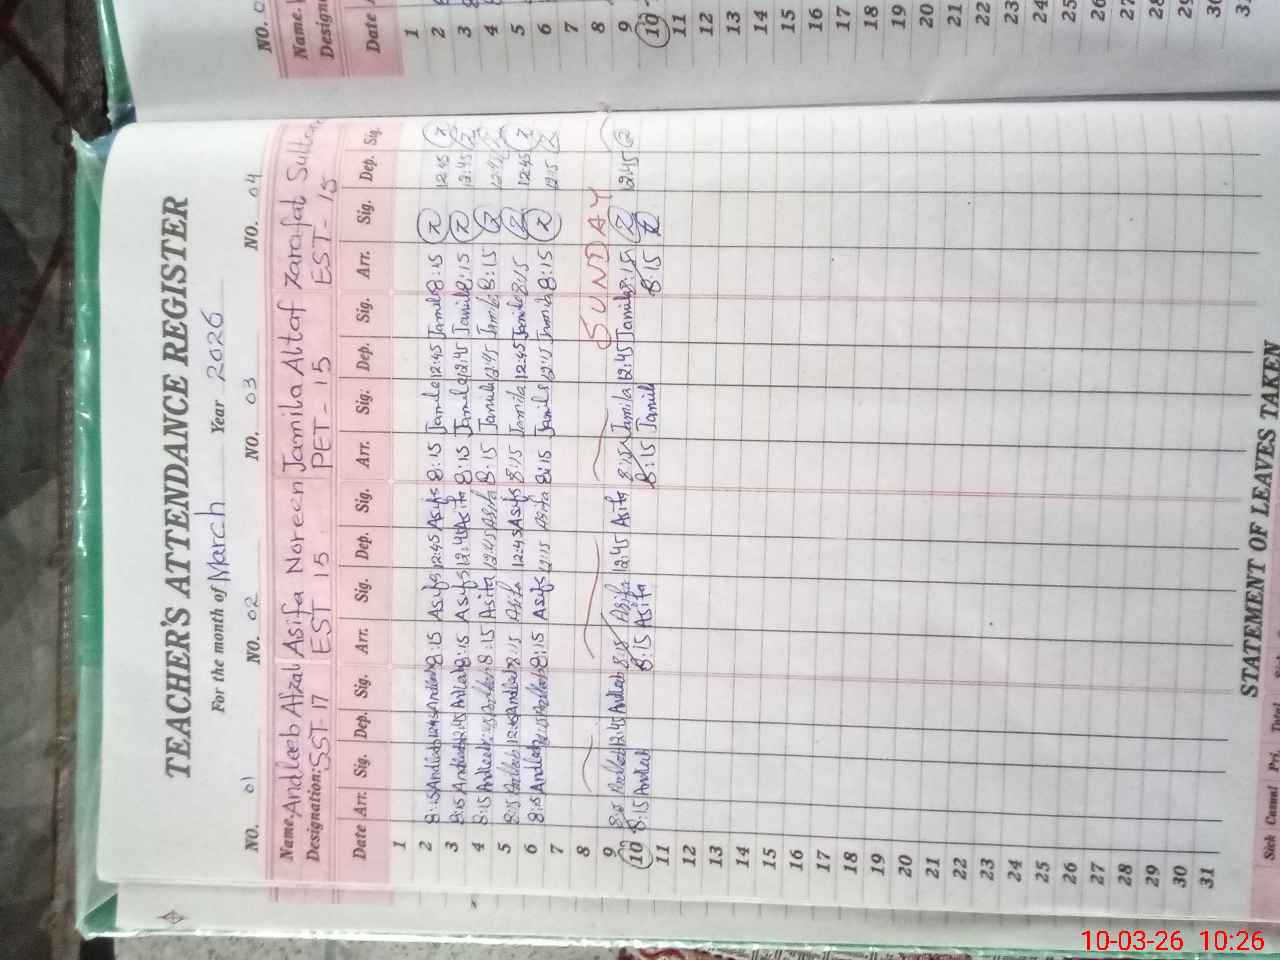 TEACHER'S ATTENDANCE REGISTER
For the month of March Year 2026
NO. 01 NO. 02 NO. 03 NO. 04
Name. Andleeb Afzal Asifa Noreen Jamila Altaf Zarafat
Designation: SST-17 EST 15 PET-15 EST-15
Date Arr. Sig. Dep. Sig. Arr. Sig. Dep. Sig. Arr. Sig. Dep. Sig. Arr. Sig. Dep. Sig.
1
2 8:15 Andleeb 12:45 Andleeb 8:15 Asifa 12:45 Asifa 8:15 Jamila 12:45 Jamila 8:15 12:45
3 8:15 Andleeb 12:45 Andleeb 8:15 Asifa 12:45 Asifa 8:15 Jamila 12:45 Jamila 8:15 12:45
4 8:15 Andleeb 12:45 Andleeb 8:15 Asifa 12:45 Asifa 8:15 Jamila 12:45 Jamila 8:15 12:45
5 8:15 Andleeb 12:45 Andleeb 8:15 Asifa 12:45 Asifa 8:15 Jamila 12:45 Jamila 8:15 12:45
6 8:15 Andleeb 12:15 Andleeb 8:15 Asifa 12:15 Asifa 8:15 Jamila 12:15 Jamila 8:15 12:15
7
8 SUNDAY
9 8:15 Andleeb 12:45 Andleeb 8:15 Asifa 12:45 Asifa 8:15 Jamila 12:45 Jamila 8:15 12:45
10 8:15 Andleeb 8:15 Asifa 8:15 Jamila 8:15
11
12
13
14
15
16
17
18
19
20
21
22
23
24
25
26
27
28
29
30
31
STATEMENT OF LEAVES TAKEN
Sick Casual Pri.
NO.
Name.
Date
1
2
3
4
5
6
7
8
9
10
11
12
13
14
15
16
17
18
19
20
21
22
23
24
25
26
27
28
29
30
10-03-26 10:26